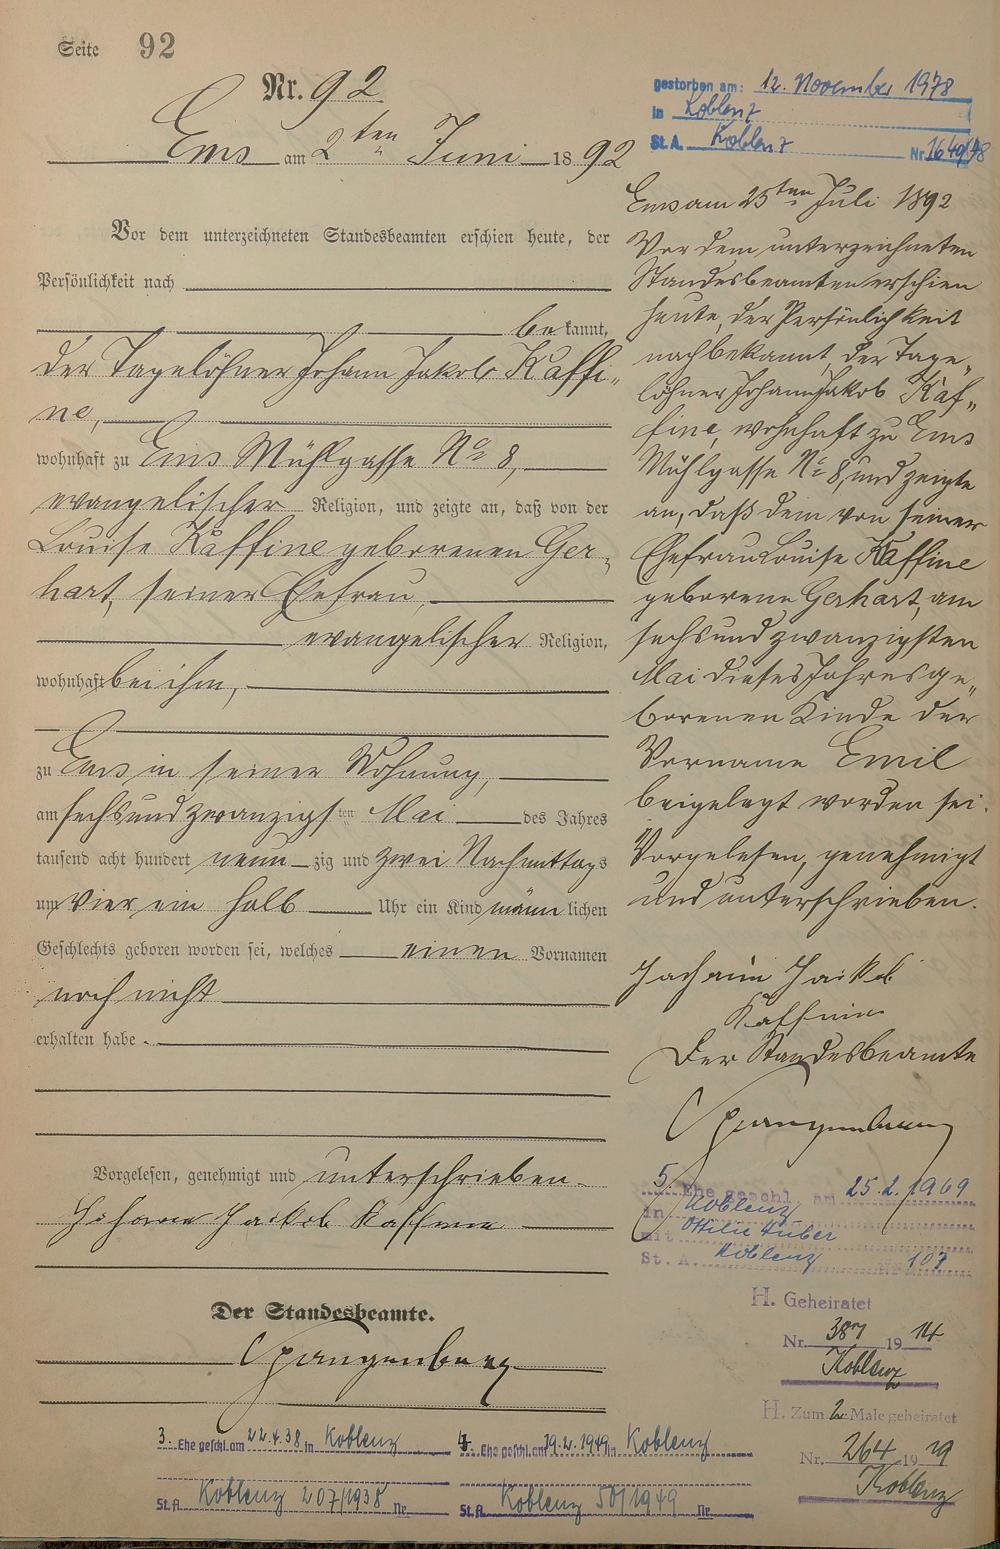 Seite 92
Nr. 92
Ems am 2ten Juni 1892
Vor dem unterzeichneten Standesbeamten erschien heute, der
Persönlichkeit nach
bekannt,
der Tagelöhner Johann Jakob Kaffi-
ne,
wohnhaft zu Ems Mühlgasse No 8,
evangelischer Religion, und zeigte an, daß von der
Louise Kaffine geborenen Ger-
hart, seiner Ehefrau,
evangelischer Religion,
wohnhaft bei ihm,
zu Ems in seiner Wohnung,
am sechsundzwanzigsten Mai des Jahres
tausend acht hundert neunzig und zwei Nachmittags
um vier ein halb Uhr ein Kind männlichen
Geschlechts geboren worden sei, welches einen Vornamen
noch nicht
erhalten habe.
Vorgelesen, genehmigt und unterschrieben.
Johann Jakob Kaffine
Der Standesbeamte.
Spangenberg
3. Ehe geschl. am 22.4.38 in Koblenz
St.A. Koblenz 207/1938 Nr.
4. Ehe geschl. am 19.2.1949 in Koblenz
St.A. Koblenz 50/1949 Nr.
gestorben am: 12. November 1978
in Koblenz
St.A. Koblenz Nr. 1649/78
Ems am 25ten Juli 1892
Vor dem unterzeichneten
Standesbeamten erschien
heute, der Persönlichkeit
nach bekannt, der Tage-
löhner Johann Jakob Kaf-
fine, wohnhaft zu Ems
Mühlgasse No 8, und zeigte
an, daß dem von seiner
Ehefrau Louise Kaffine
geborene Gerhart, am
sechsundzwanzigsten
Mai dieses Jahres ge-
borenen Kinde der
Vorname Emil
beigelegt worden sei.
Vorgelesen, genehmigt
und unterschrieben.
Johann Jakob
Kaffine
Der Standesbeamte
Spangenberg
5. Ehe geschl. am 25.2.1969
in Koblenz
mit Ottilie Huber
St. A. Koblenz Nr. 107
H. Geheiratet
Nr. 387 1914
Koblenz
H. Zum 2. Male geheiratet
Nr. 264 1919
Koblenz